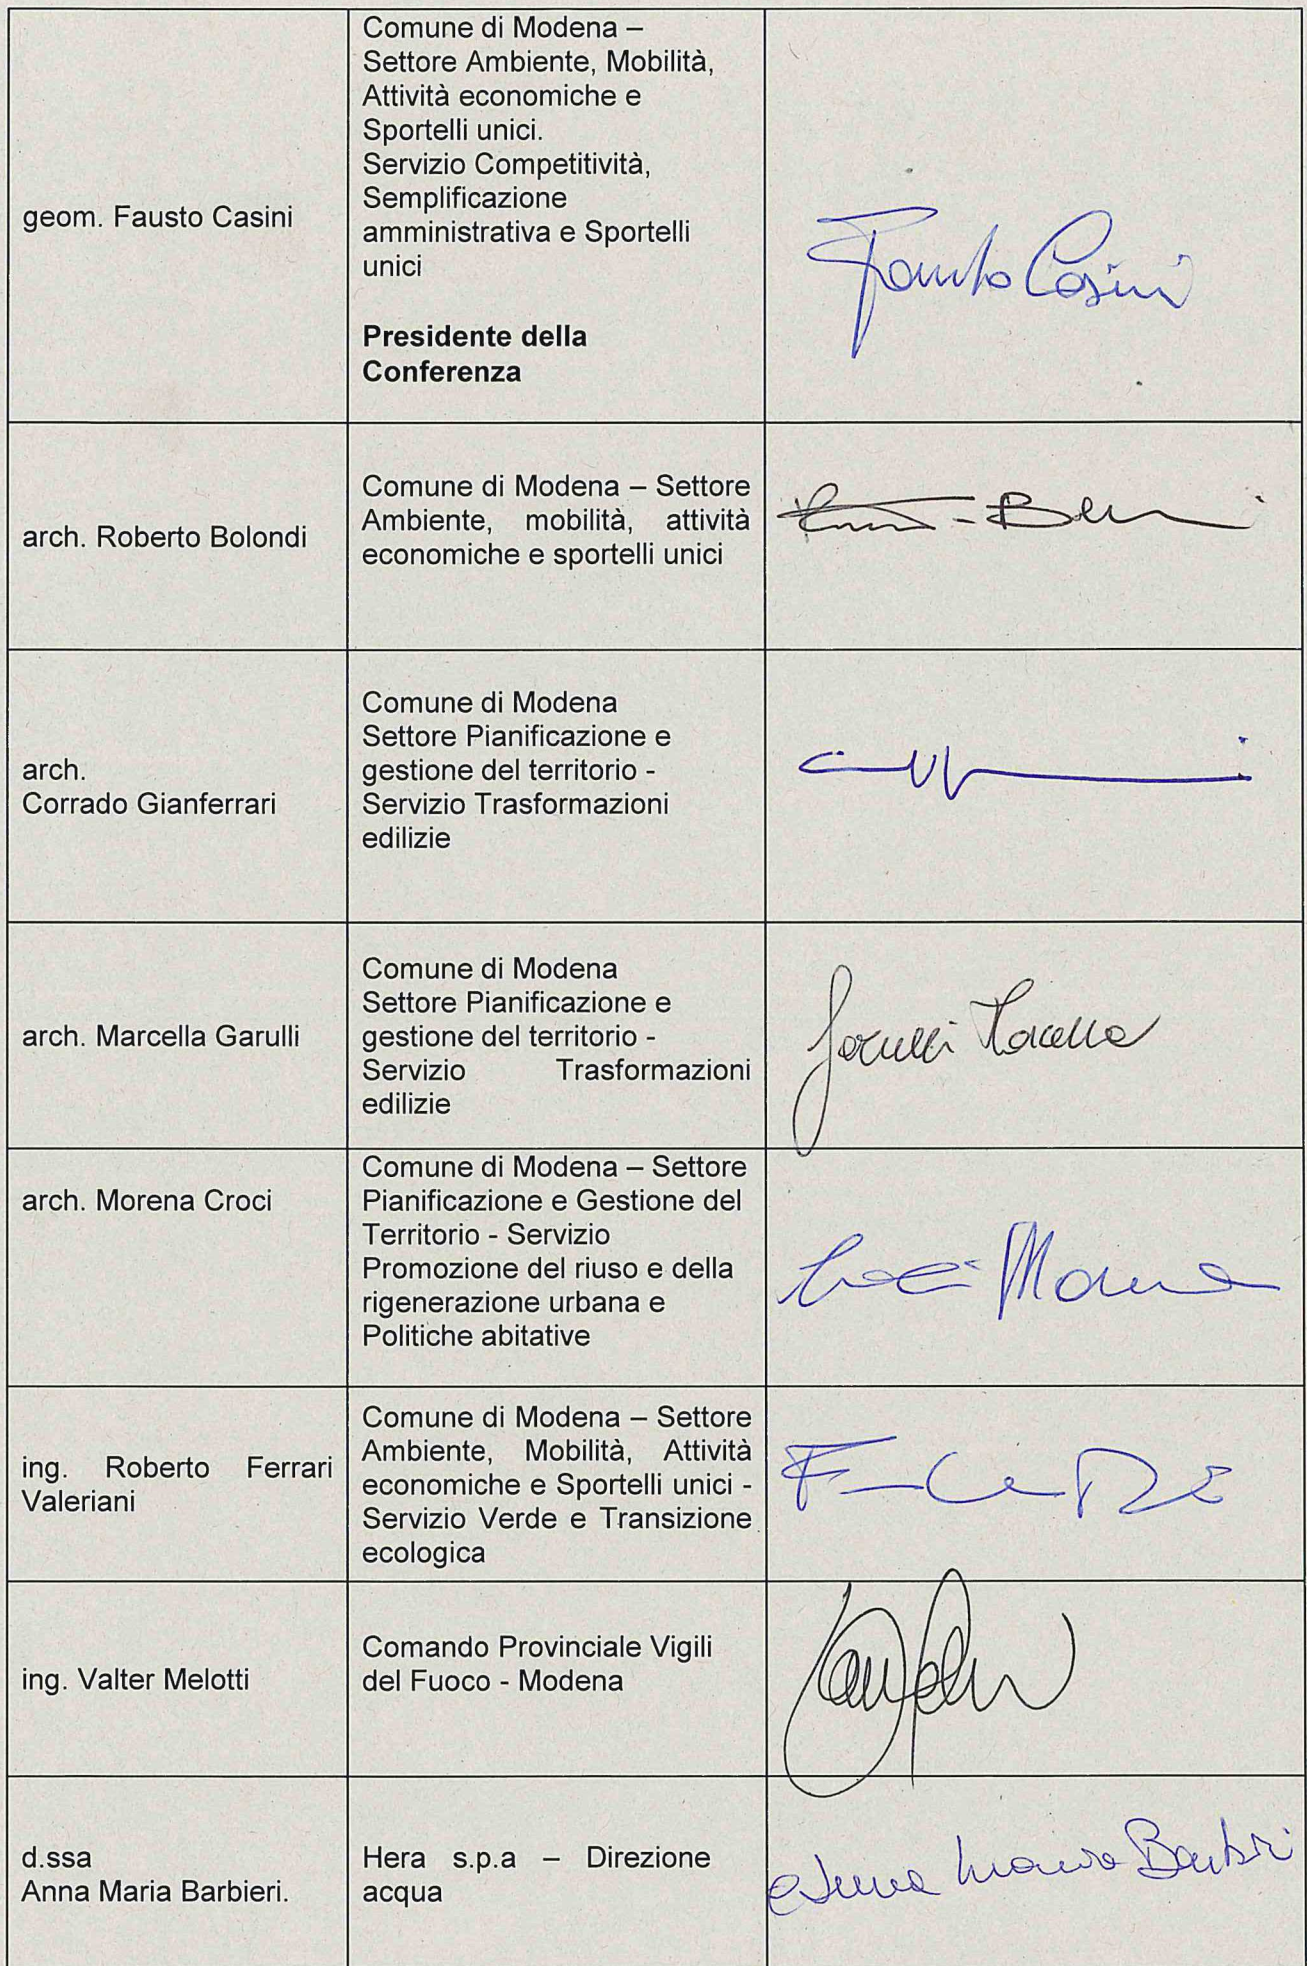 geom. Fausto Casini
Comune di Modena –
Settore Ambiente, Mobilità,
Attività economiche e
Sportelli unici.
Servizio Competitività,
Semplificazione
amministrativa e Sportelli
unici
Presidente della
Conferenza
Fausto Casini
arch. Roberto Bolondi
Comune di Modena – Settore
Ambiente, mobilità, attività
economiche e sportelli unici
arch.
Corrado Gianferrari
Comune di Modena
Settore Pianificazione e
gestione del territorio -
Servizio Trasformazioni
edilizie
arch. Marcella Garulli
Comune di Modena
Settore Pianificazione e
gestione del territorio -
Servizio Trasformazioni
edilizie
Garulli Marcella
arch. Morena Croci
Comune di Modena – Settore
Pianificazione e Gestione del
Territorio - Servizio
Promozione del riuso e della
rigenerazione urbana e
Politiche abitative
Croci Morena
ing. Roberto Ferrari
Valeriani
Comune di Modena – Settore
Ambiente, Mobilità, Attività
economiche e Sportelli unici -
Servizio Verde e Transizione
ecologica
ing. Valter Melotti
Comando Provinciale Vigili
del Fuoco - Modena
d.ssa
Anna Maria Barbieri.
Hera s.p.a – Direzione
acqua
Anna Maria Barbieri